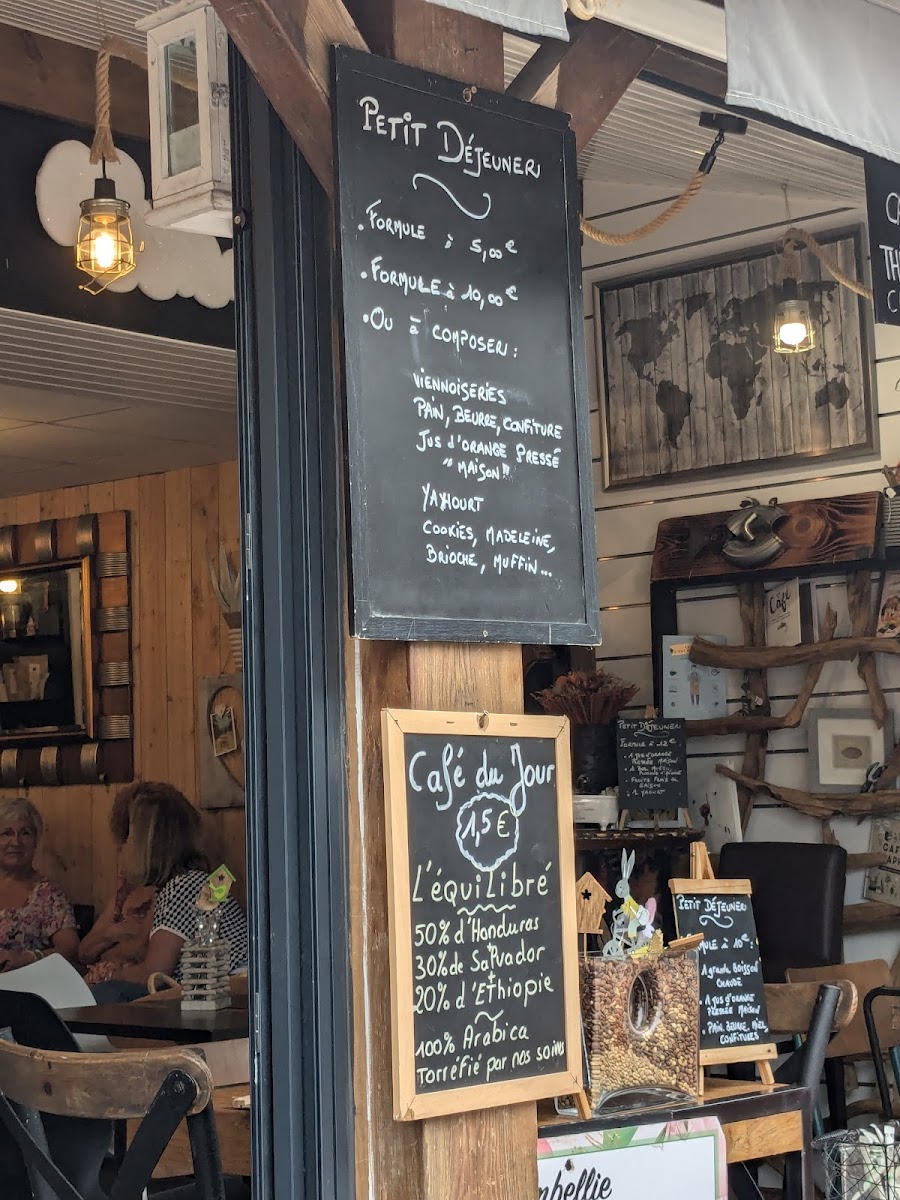 PETIT DÉJEUNER
• FORMULE à 5,00€
• FORMULE à 10,00€
• OU à COMPOSER :
VIENNOISERIES
PAIN, BEURRE, CONFITURE
JUS d'ORANGE PRESSÉ
"MAISON"
YAHOURT
COOKIES, MADELEINE,
BRIOCHE, MUFFIN...
Café du Jour
1,5€
L'équiLibré
50% d'Honduras
+
30% de Salvador
+
20% d'Ethiopie
100% Arabica
Torréfié par nos soins
PETIT DÉJEUNER
FORMULE à 12€
• 1 JUS d'ORANGE
PRESSÉE MAISON
FRUITS FRAIS DE
SAISON
• 1 YAOURT
PETIT DÉJEUNER
MULE à 10€ :
1 grande BOISSON
CHAUDE
• 1 JUS d'ORANGE
PRESSÉE MAISON
• PAIN, BEURRE, MIEL,
CONFITURES
Café
CA
TH
C
mbellie